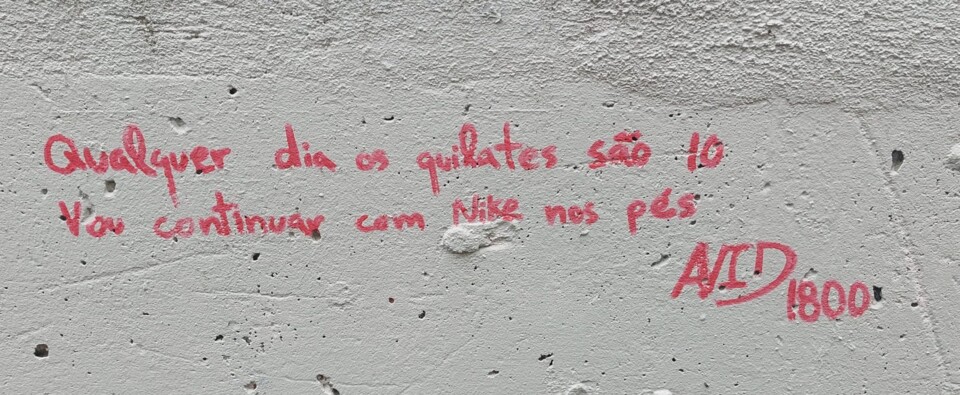 Qualquer dia os quilates são 10
Vou continuar com Nike nos pés
AVID 1800